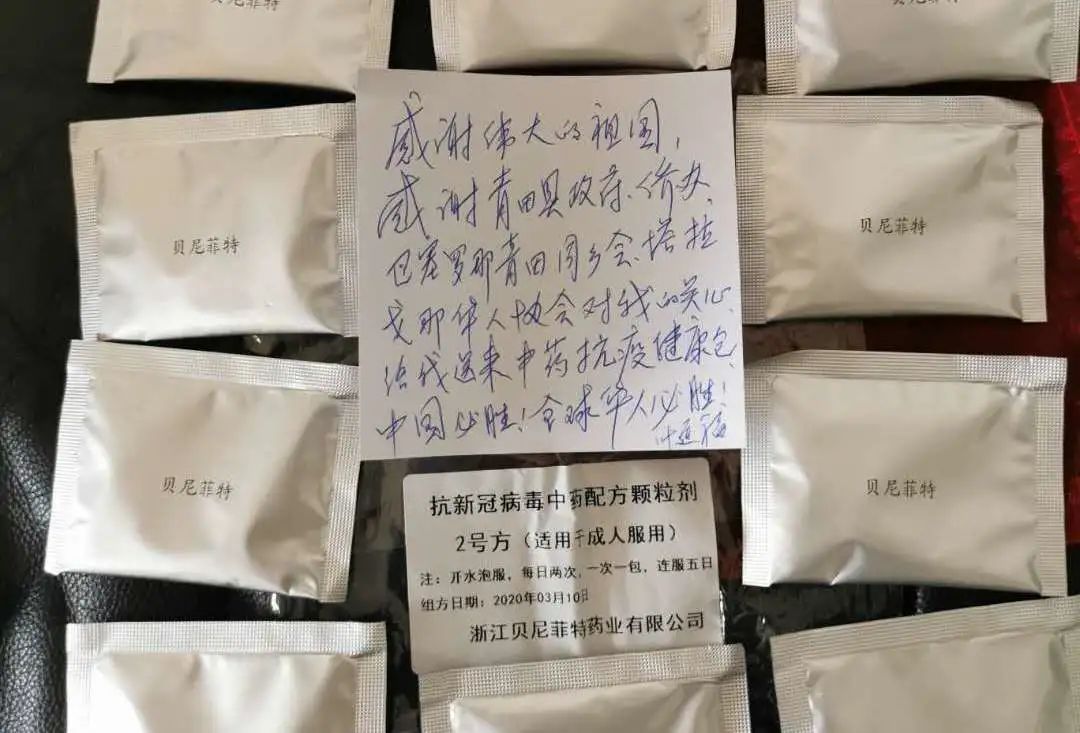 贝尼菲特
贝尼菲特
感谢伟大的祖国,
感谢青田县政府、侨办、
巴塞罗那青田同乡会、塔拉
戈那华人协会对我的关心、
给我送来中药抗疫健康包、
中国必胜!全球华人必胜!
贝尼菲特
贝尼菲特
贝尼菲特
贝尼菲特
抗新冠病毒中药配方颗粒剂
2号方(适用于成人服用)
注:开水泡服,每日两次,一次一包,连服五日
组方日期:2020年03月10日
浙江贝尼菲特药业有限公司